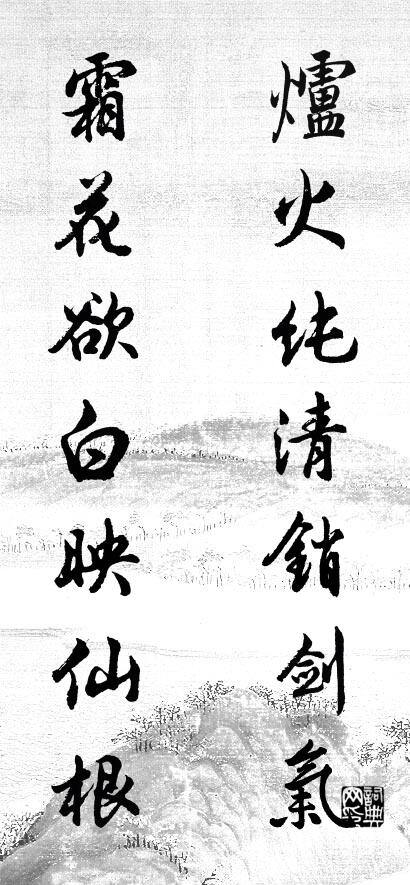 爐火纯清銷剑氣
霜花欲白映仙根
詞典网